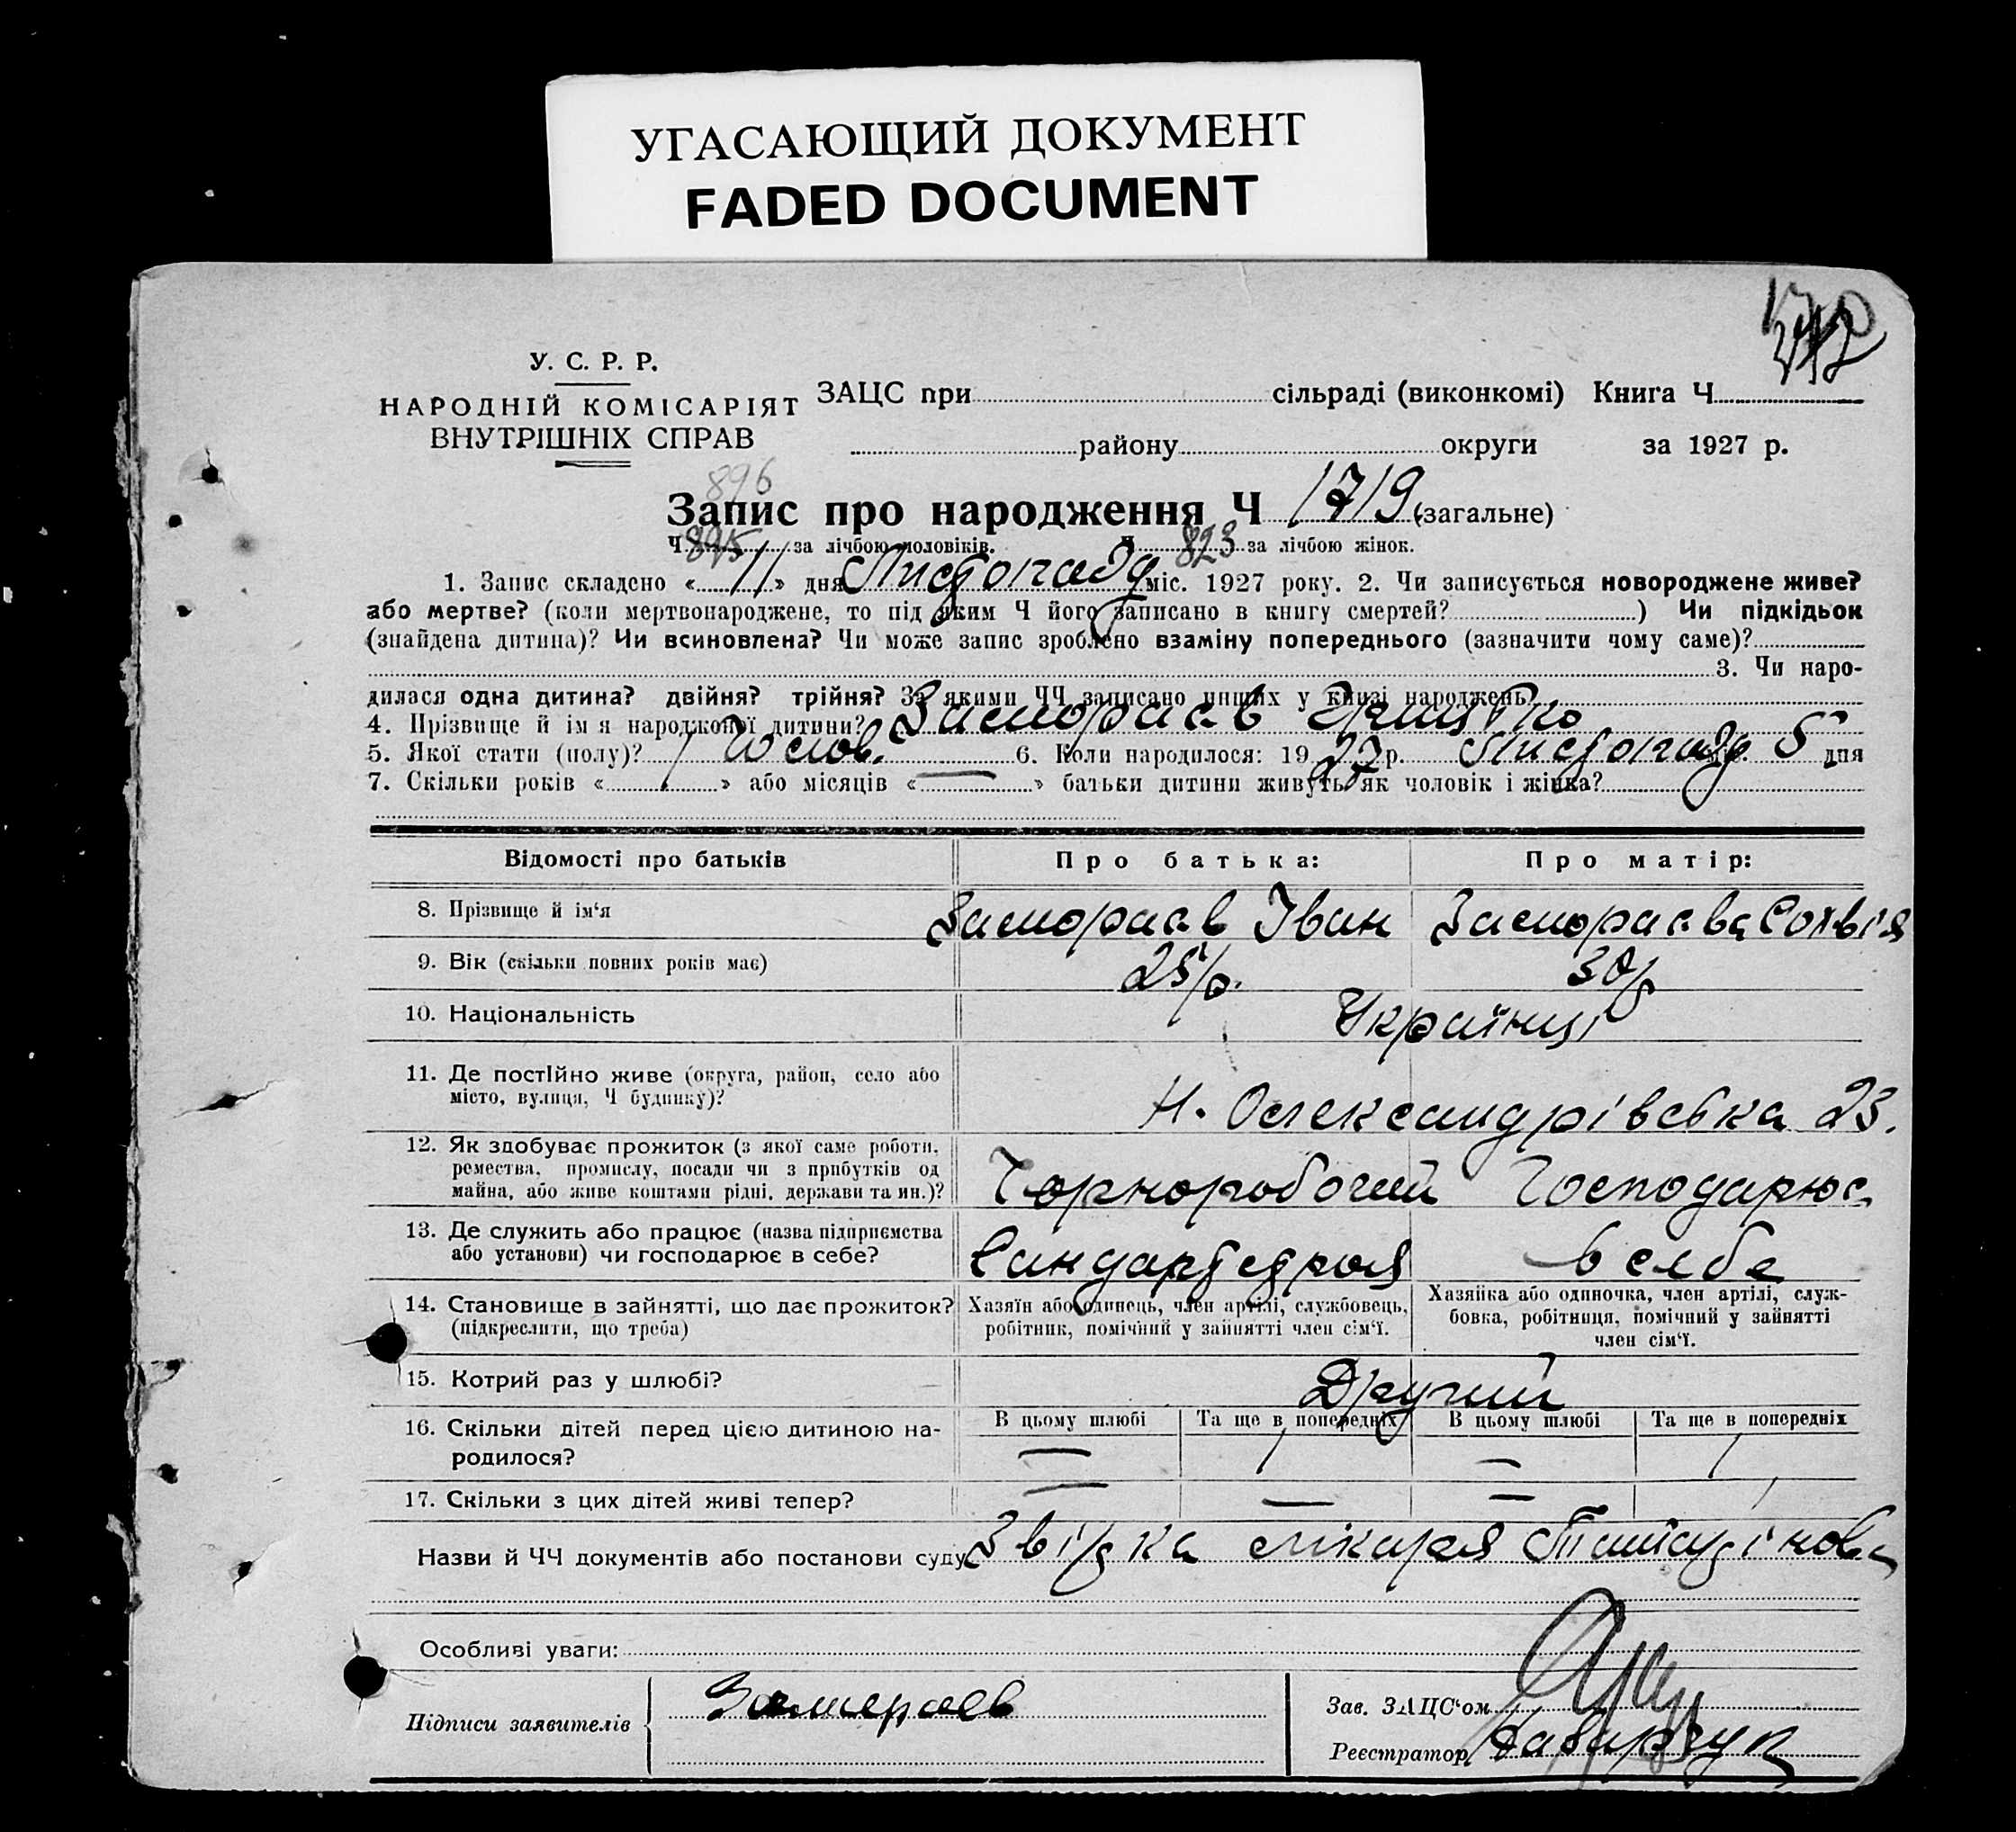 УГАСАЮЩИЙ ДОКУМЕНТ
FADED DOCUMENT
У. С. Р. Р.
НАРОДНІЙ КОМІСАРІЯТ
ВНУТРІШНІХ СПРАВ
ЗАЦС при сільраді (виконкомі) Книга Ч
району округи за 1927 р.
896
Запис про народження Ч 1719 (загальне)
Ч 895 за лічбою чоловіків. Ч 823 за лічбою жінок.
1. Запис складено « 11 » дня Листопада міс. 1927 року. 2. Чи записується новороджене живе?
або мертве? (коли мертвонароджене, то під яким Ч його записано в книгу смертей? ) Чи підкідьок
(знайдена дитина)? Чи всиновлена? Чи може запис зроблено взаміну попереднього (зазначити чому саме)?
3. Чи наро-
дилася одна дитина? двійня? трійня? За якими ЧЧ записано инших у книзі народжень
4. Прізвище й ім я народженої дитини?
5. Якої стати (полу)? Чолов. 6. Коли народилося: 19 27 р. Листопада міс. 5 дня
7. Скільки років « 1 » або місяців « — » батьки дитини живуть як чоловік і жінка?
Відомості про батьків Про батька: Про матір:
8. Прізвище й ім‘я Іван Софія
9. Вік (скільки повних років має) 25/р. 30/р
10. Національність Українці
11. Де постійно живе (округа, район, село або
місто, вулиця, Ч будинку)?
Н. Олександрівська 23.
12. Як здобуває прожиток (з якої саме роботи,
ремества, промислу, посади чи з прибутків од
майна, або живе коштами рідні, держави та ин.)?
Чорноробочий Господарює
13. Де служить або працює (назва підприємства
або установи) чи господарює в себе?
в себе
14. Становище в зайнятті, що дає прожиток?
(підкреслити, що треба)
Хазяїн або одинець, член артілі, службовець,
робітник, помічний у зайнятті член сім‘ї.
Хазяйка або одиночка, член артілі, служ-
бовка, робітниця, помічний у зайнятті
член сім‘ї.
15. Котрий раз у шлюбі? Другий
В цьому шлюбі Та ще в попередніх В цьому шлюбі Та ще в попередніх
16. Скільки дітей перед цією дитиною на-
родилося?
— 1 — 1
17. Скільки з цих дітей живі тепер? — — — 1
Назви й ЧЧ документів або постанови суду лікаря
Особливі уваги:
Підписи заявителів
Зав. ЗАЦС‘ом
Реєстратор